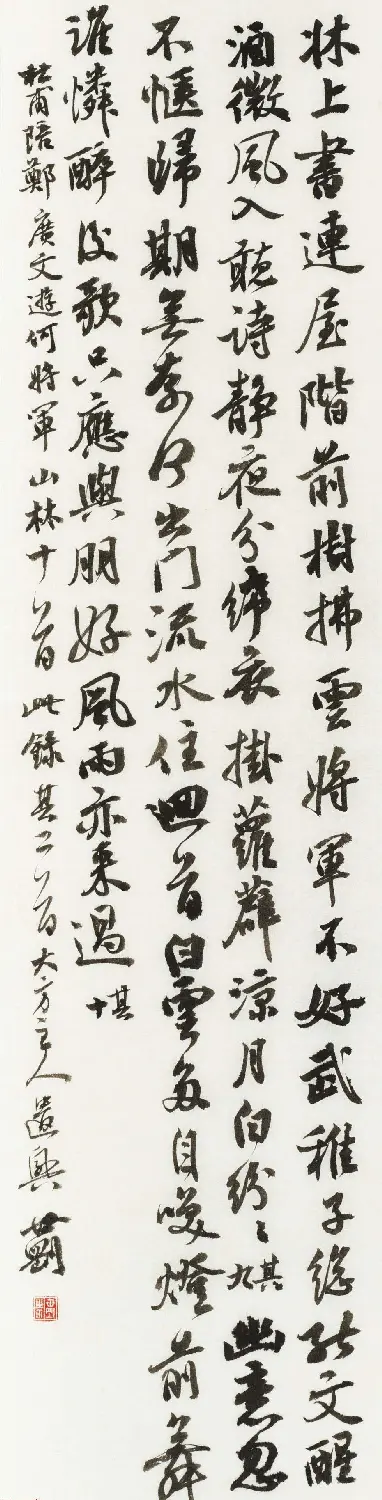 牀上書連屋階前樹拂雲將軍不好武稚子總能文醒
酒微風入聽詩靜夜分絺衣掛蘿薜涼月白紛〻其九幽意忽
不愜歸期無奈何出門流水住迴首白雲多自咲燈前舞
誰憐醉後歌只應與朋好風雨亦來過其十
杜甫陪鄭廣文遊何將軍山林十首此錄其二首大方主人遣興